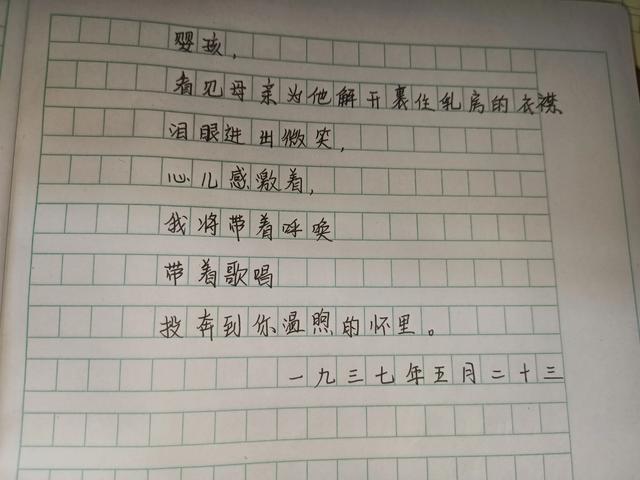 婴孩，
看见母亲为他解开裹住乳房的衣襟
泪眼迸出微笑，
心儿感激着，
我将带着呼唤
带着歌唱
投奔到你温煦的怀里。
一九三七年五月二十三